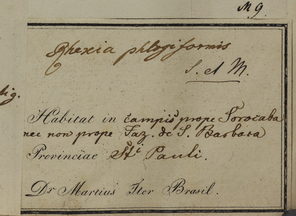 M9.
Rhexia phlogiformis
S. et M.
big.
Habitat in campis prope Sorocaba
nec non prope Faz. de S. Barbara
Provinciae Sti Pauli.
Dr Martius Iter Brasil.